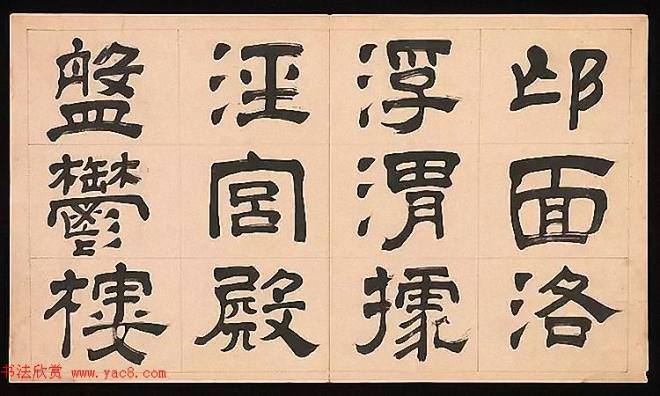 邙面洛
浮渭據
涇宮殿
盤鬱樓
书法欣赏 www.yac8.com